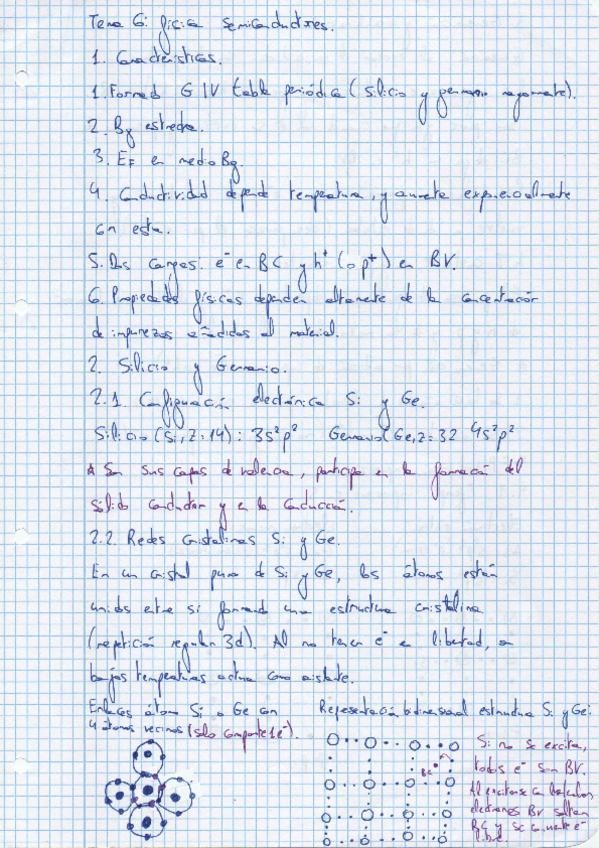 Tema 6: física semiconductores.
1. Características.
1. Formado G IV tabla periódica (silicio y germanio mayormente).
2. Bg estrecha.
3. EF en medio Bg.
4. Conductividad depende temperatura, y aumenta exponencialmente
con esta.
5. Dos cargas: e⁻ en BC y h⁺ (o p⁺) en BV.
6. Propiedades físicas dependen altamente de la concentración
de impurezas añadidas al material.
2. Silicio y Germanio.
2.1. Configuración electrónica Si y Ge.
Silicio (Si, Z=14): 3s²p² Germanio (Ge, Z=32 4s²p²
* Son sus capas de valencia, participa en la formación del
sólido conductor y en la conducción.
2.2. Redes cristalinas Si y Ge.
En un cristal puro de Si y Ge, los átomos están
unidos entre sí formando una estructura cristalina
(repetición regular 3d). Al no tener e⁻ en libertad, a
bajas temperaturas actúa como aislante.
Enlaces átomo Si o Ge con
4 átomos vecinos (solo comparte 1e⁻).
Representación bidimensional estructura Si y Ge:
Si no se excita,
todos e⁻ son BV.
Al excitarse con
electrones BV saltan
BC y se convierte e⁻
libre.
BC